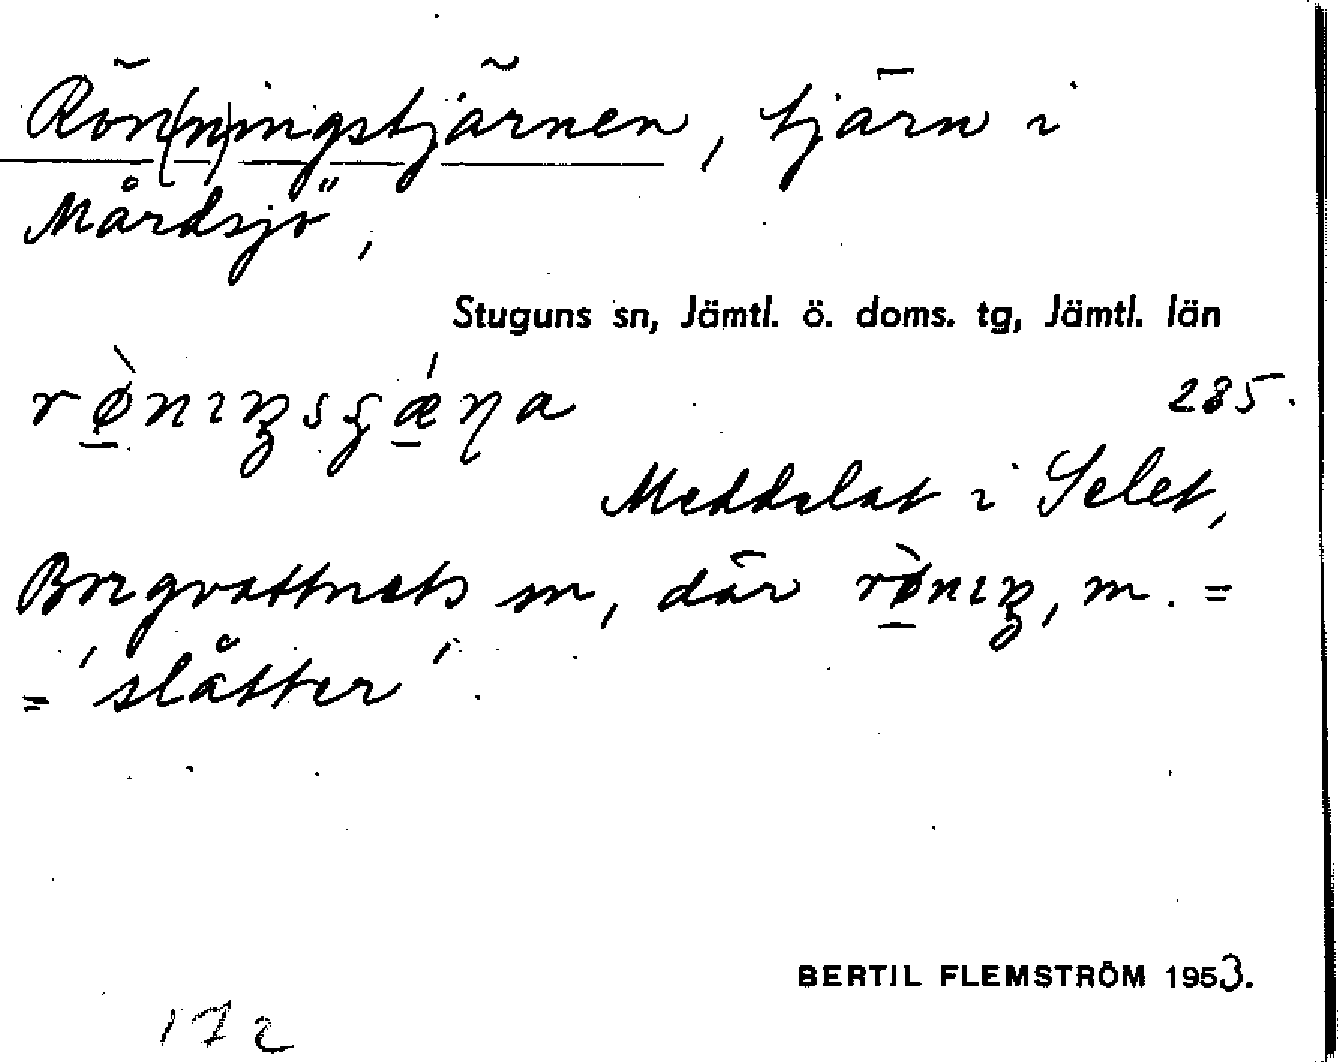 Rön(n)ingstjärnen, tjärn i
Mårdsjö,
Stuguns sn, Jämtl. ö. doms. tg, Jämtl. län
285.
Meddelat i Selet,
Borgvattnets sn, där rø̀nıŋ, m. =
= 'slåtter'.
BERTIL FLEMSTRÖM 1953.
172